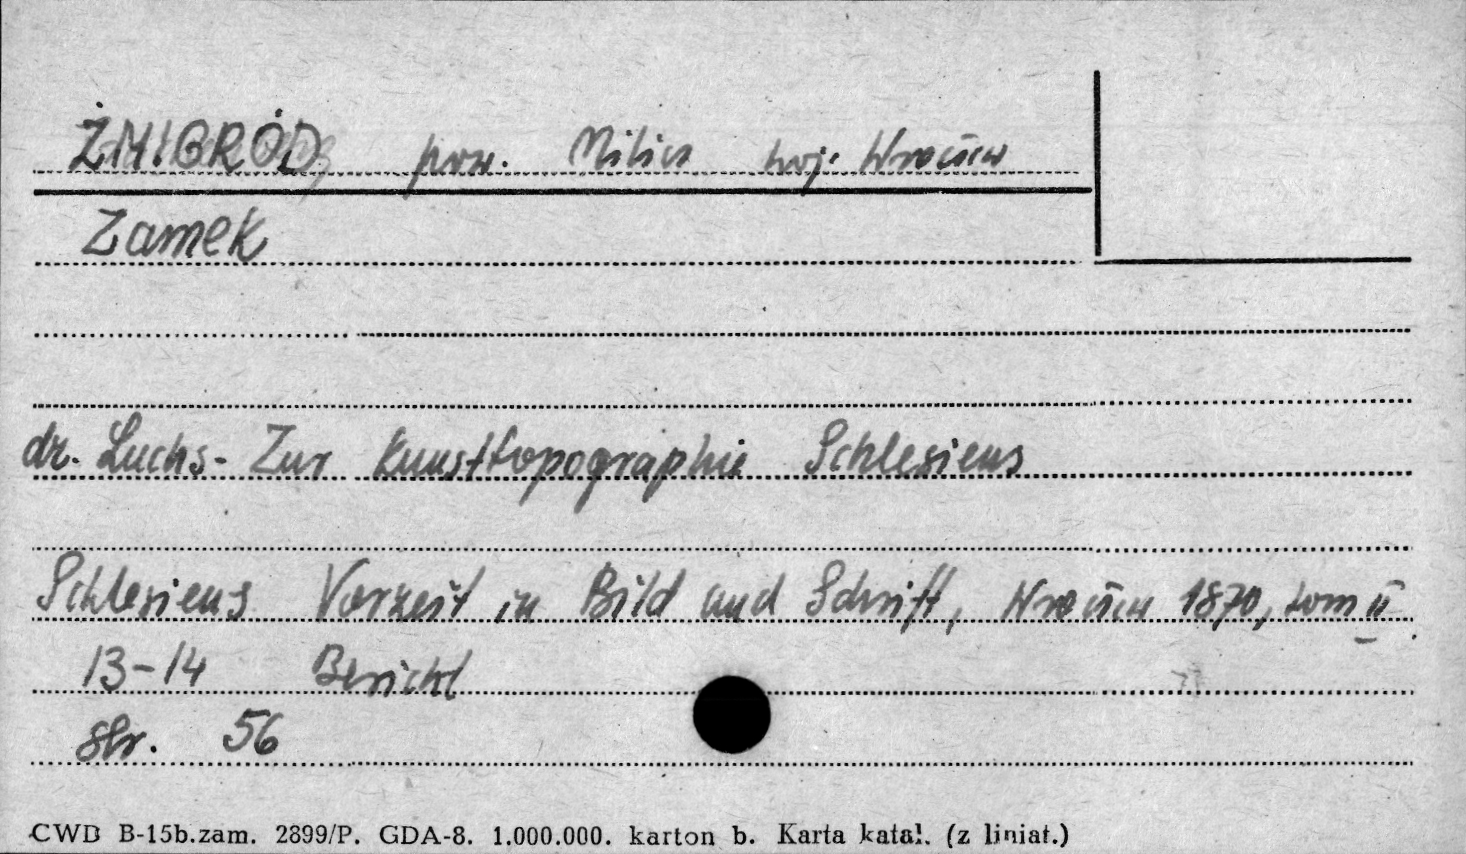 ŻMIGRÓD pow. Milicz woj. Wrocław
Zamek
dr. Luchs - Zur Kunsttopographie Schlesiens
Schlesiens Vorzeit in Bild und Schrift, Wrocław 1870, tom II
13-14 Bericht
str. 56
CWD B-15b.zam. 2899/P. GDA-8. 1.000.000. karton b. Karta katal. (z liniat.)